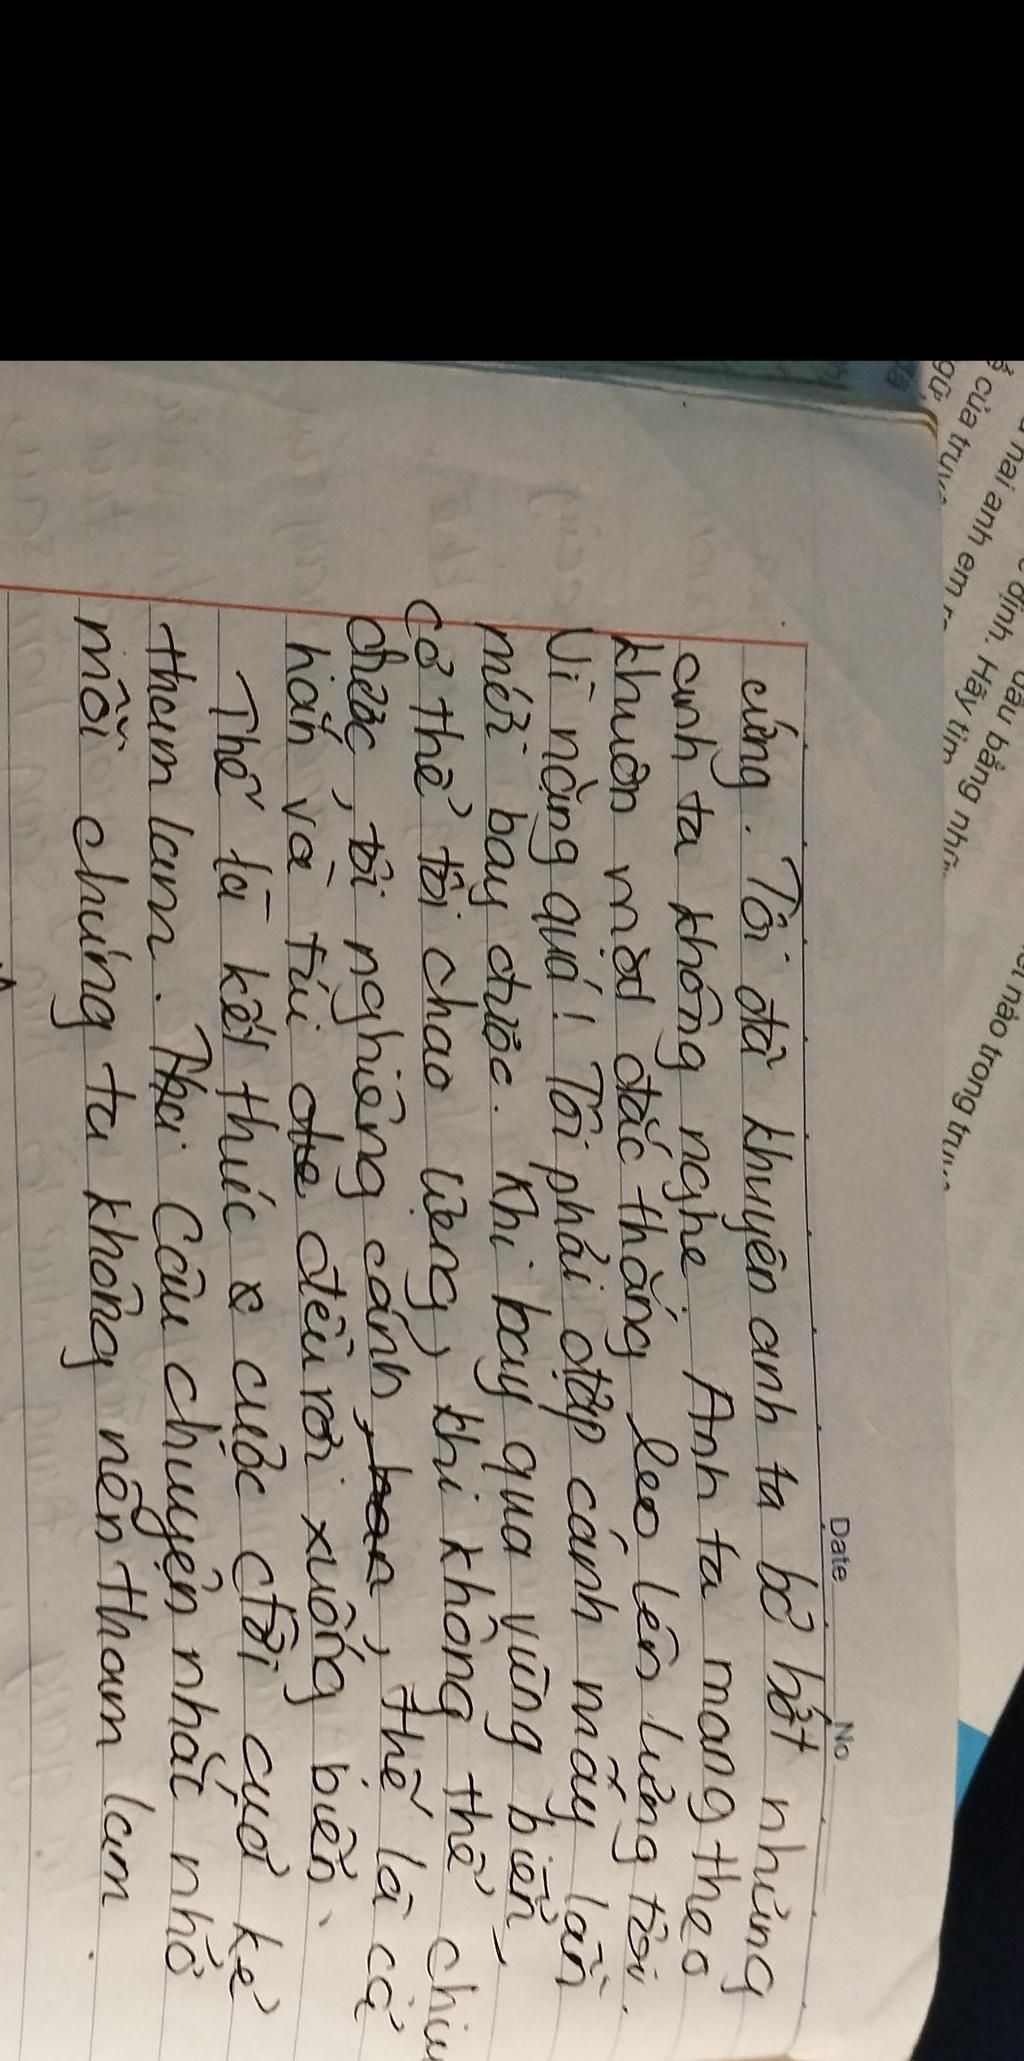 ể của truy
ngữ
hai anh em
định. Hãy tìm
dấu bằng nhữ
nào trong tru
Date No
cứng. Tôi đã khuyên anh ta bỏ bớt nhưng
anh ta không nghe. Anh ta mang theo
khuôn mặt đắc thắng leo lên lưng tôi.
Vì nặng quá! Tôi phải đập cánh mấy lần
mới bay được. Khi bay qua vùng biển,
có thể tôi chao lượng, khi không thể chịu
được, tôi nghiêng cánh, thế là cả
hắn và túi đều rơi xuống biển.
Thế là kết thúc cuộc đời cuả kẻ
tham lam. Câu chuyện nhắc nhở
mỗi chúng ta không nên tham lam.